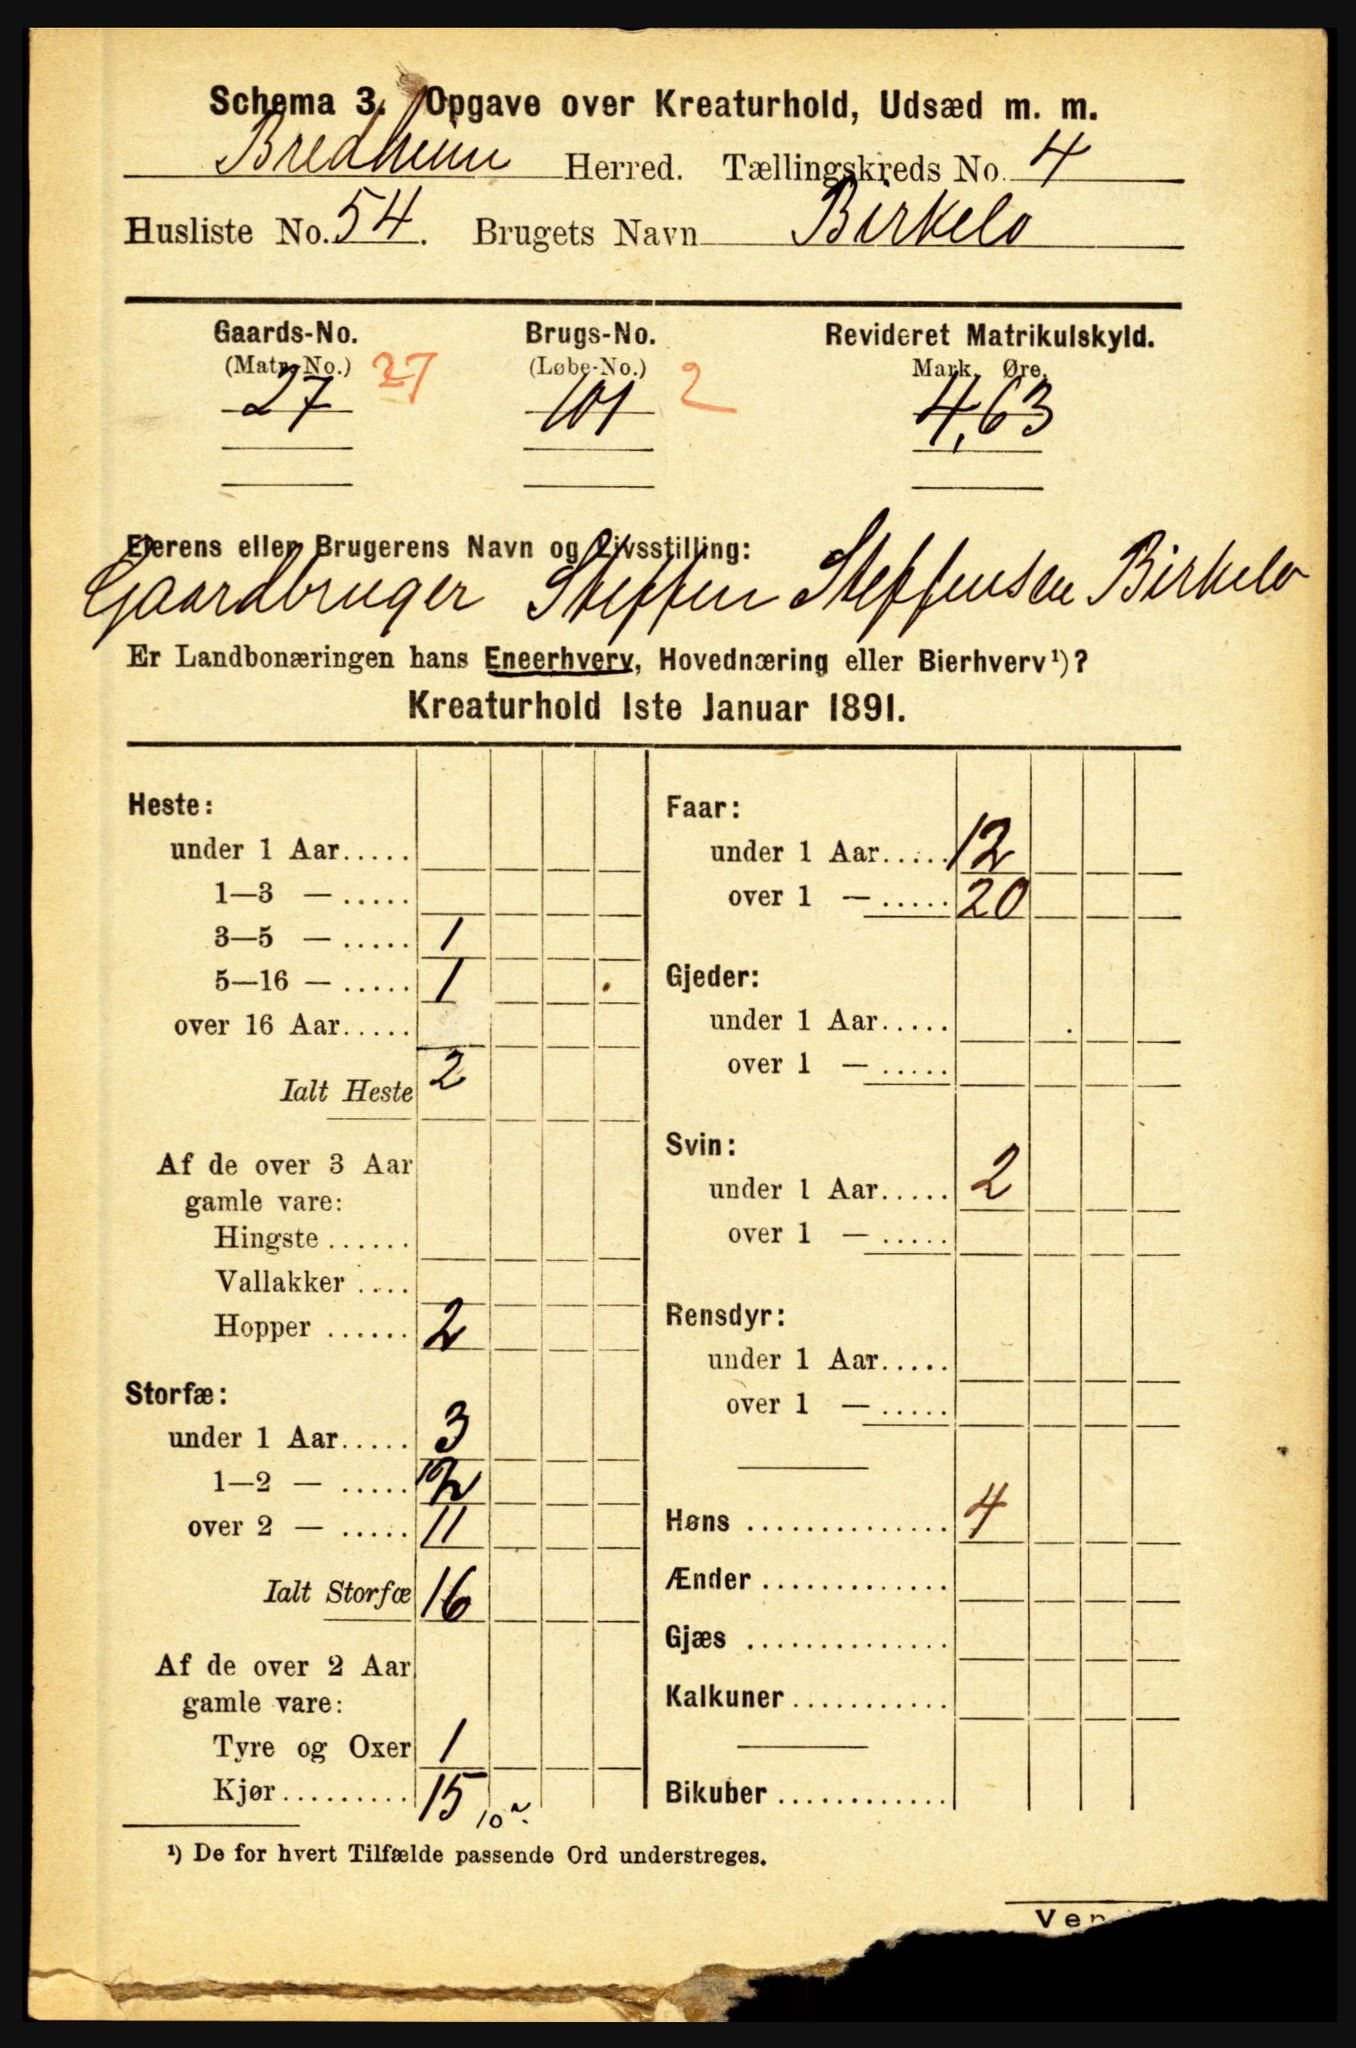 Schema 3. Opgave over Kreaturhold, Udsæd m. m.
Bredheim Herred. Tællingskreds No. 4
Husliste No. 54. Brugets Navn Birkelo
Gaards-No. Brugs-No. Revideret Matrikulskyld.
(Matr.-No.) 27 (Løbe-No.) 2 Mark. Øre.
27 101 4,63
Eierens eller Brugerens Navn og Livsstilling:
Gaardbruger Steffen Steffensen Birkelo
Er Landbonæringen hans Eneerhverv, Hovednæring eller Bierhverv¹)?
Kreaturhold 1ste Januar 1891.
Heste:
under 1 Aar.....
1—3 — .....
3—5 — ..... 1
5—16 — ..... 1
over 16 Aar.....
Ialt Heste 2
Af de over 3 Aar
gamle vare:
Hingste ......
Vallakker ....
Hopper ...... 2
Storfæ:
under 1 Aar..... 3
1—2 — ..... 2
over 2 — ..... 11
Ialt Storfæ 16
Af de over 2 Aar
gamle vare:
Tyre og Oxer 1
Kjør......... 15 10
Faar:
under 1 Aar..... 12
over 1 — ..... 20
Gjeder:
under 1 Aar.....
over 1 — .....
Svin:
under 1 Aar..... 2
over 1 — .....
Rensdyr:
under 1 Aar.....
over 1 — .....
Høns .............. 4
Ænder .............
Gjæs ..............
Kalkuner...........
Bikuber ............
¹) De for hvert Tilfælde passende Ord understreges.